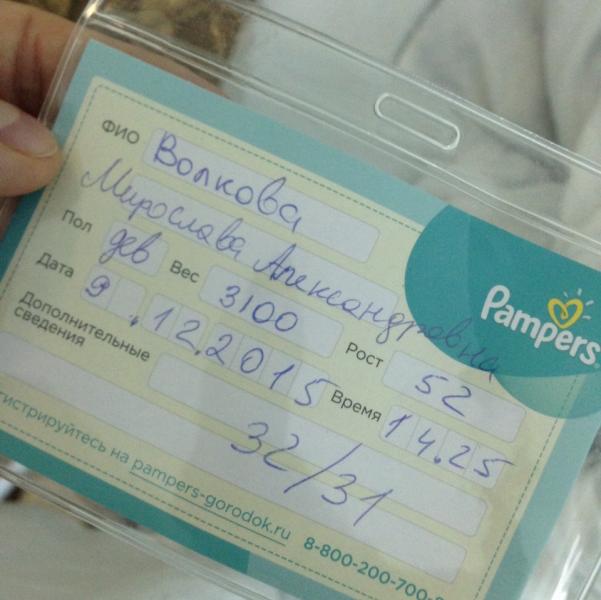 ФИО Волкова
Мирослава Александровна
Пол дев Вес 3100 Рост 52
Дата 9.12.2015 Время 14.25
Дополнительные
сведения
32/31
Pampers
гистрируйтесь на pampers-gorodok.ru 8-800-200-700-